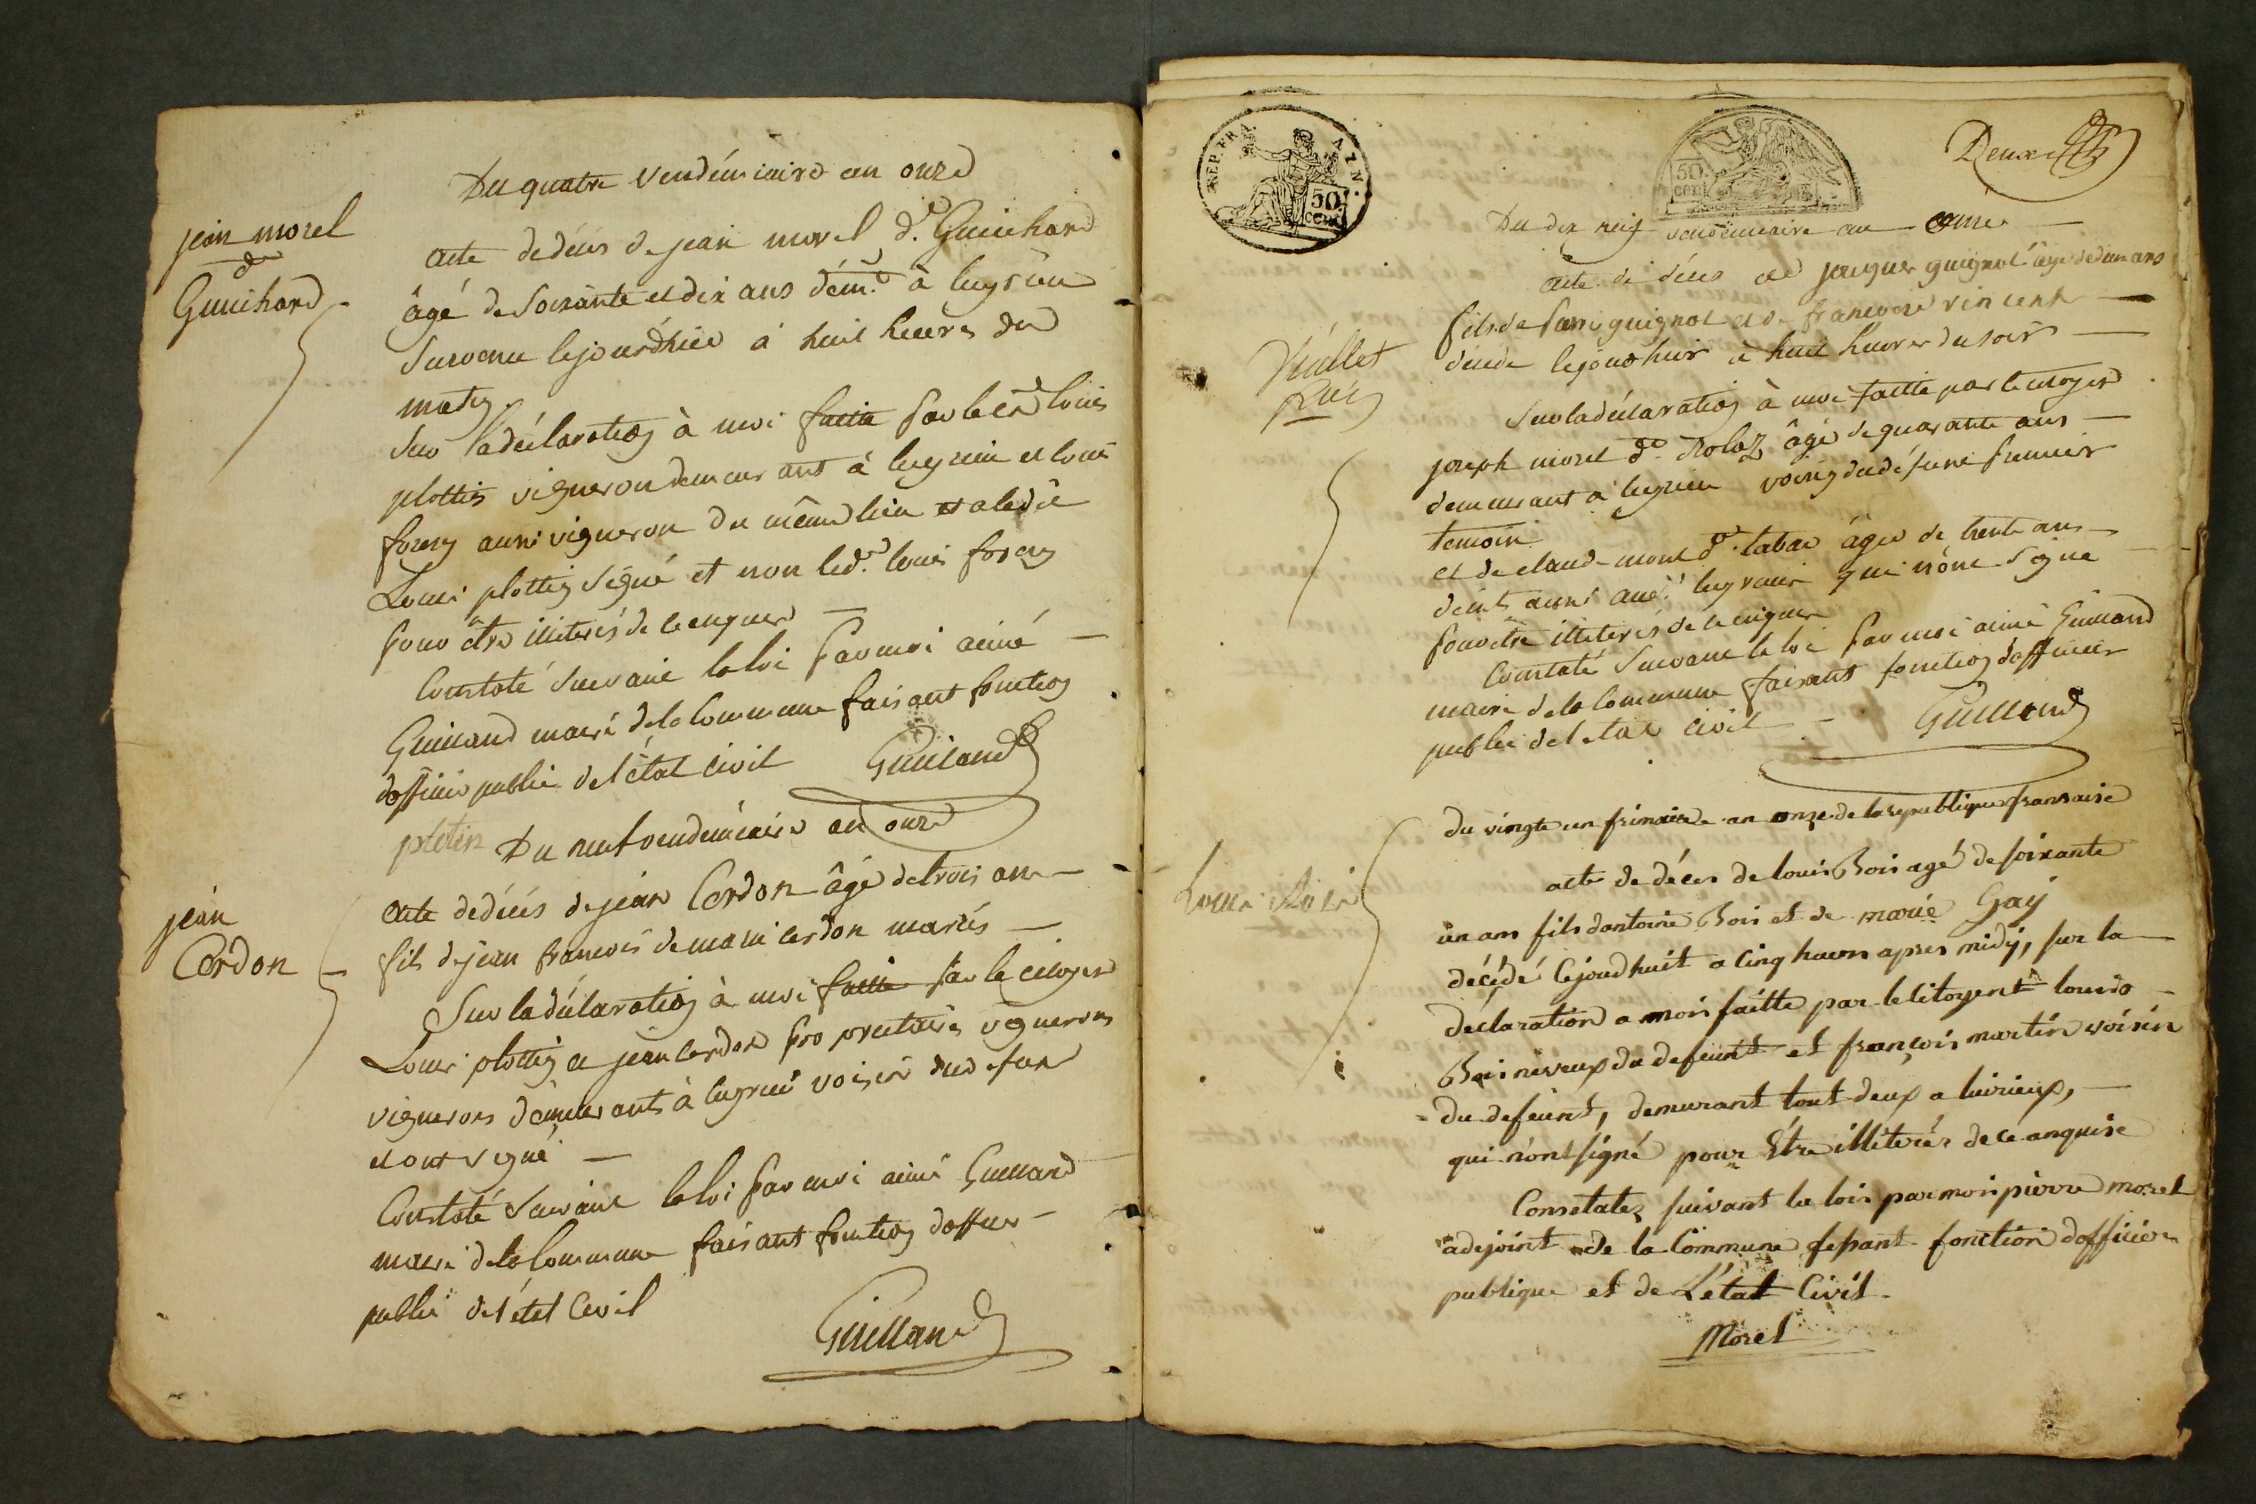 Du quatre vendémiaire an onze
jean morel
dt
Guichard
acte de décés de jean morel dt. Guichard
âgé de Soixante et dix ans dem.t à lugrieu
Survenu lejourdhui à huit heures du
matin
Sur la déclaration à moi faitte par le cen louis
plottin vigneron demeurant à lugrieu et louis
forey aussi vigneron du même lieu et a ledit
Louis plottin signé et non led.t louis forey
pour être illiterés de ce enquer
Constaté suivant la loi par moi aimé
Guilland maire de la Commune faisant fonction
dofficier public de l'état civil Guilland
plotin
Du neuf vendemiaire an onze
jean
Cerdon
acte de décés de jean Cerdon âgé de trois ans
fils de jean francois de marie cerdon mariés
Sur la déclaration à moi faitte par le citoyen
Louis plottin et jean cerdon proprietaires vignerons
vignerons demeurants à lugrieu voisin dud efun
et ont signé
Constaté suivant la loi par moi aimé Guilland
maire de la Commune faisant fonction dofficier
public de l'état Civil
Guilland
REP. FRA. 50 CEN.
50 CEN
Deux
Du dix neuf vendemiaire an onze
acte de décés de jacques guignot âgé de deux ans
fils de pierre guignot et de francoise vincent
décéde lejourdhuis à huit heures du soir
Sur la déclaration à moi faitte par le citoyen
joseph morel dt. Rolaz âgé de quarante ans
demeurant à lugrieu voisin du défunt premier
temoin
et de claude morel dt. labae âgée de trente ans
demt aussi aud.t lugrieu qui nont signé
pour être illiterés de ce enquer
Constaté suivant la loi par moi aimé Guilland
maire de la Commune faisant fonction dofficier
public de letat civil Guilland
du vingte un frimaire an onze de la republique fransaise
Louis Bois
acte de déces de louis Bois agé de soixante
un ans fils dantoine Bois et de marie Gay
décédé lejourdhuit a cinq heures apres midy, sur la
declaration a moi faitte par le citoyent louis
Bois neveux du defeunt et françois martin voisin
du defeunt, demurant tout deux a luirieux,
qui n'ont signé pour être illiterés de ce anquise
Consetatez suivant la loix par moi pierre morel
adejoint de la Commune fesant fonction dofficier
publique et de L'état Civil.
Morel